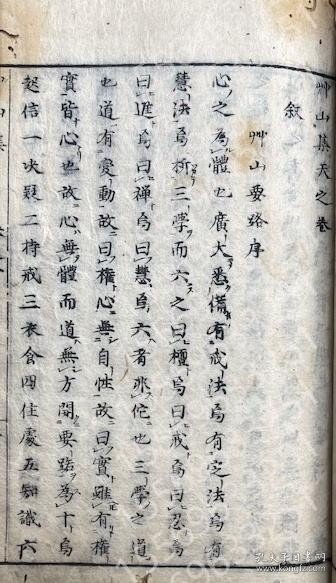 艸山集天之卷
叙
艸山要路序
心之為體也廣大悉備有戒法焉有定法焉有
慧法焉析三學而六之曰檀焉曰戒焉曰忍焉
曰進焉曰禪焉曰慧焉六者非佗也三學之道
也道有變動故曰權心無自性故曰實雖有權
實皆心也故心無體而道無方開要路為十焉
起信一決疑二持戒三衣食四住處五知識六